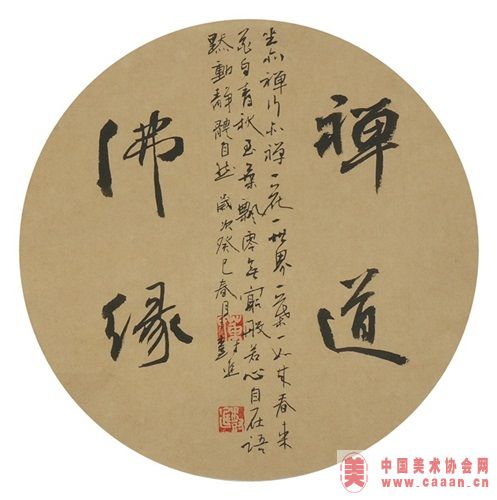 禅道
坐亦禅行亦禅一花一世界一葉一如来春来
花自青秋至葉飄零無窮般若心自在語
默動靜體自然 歲次癸巳春月
佛缘
美
中国美术协会网
www.caaan.cn